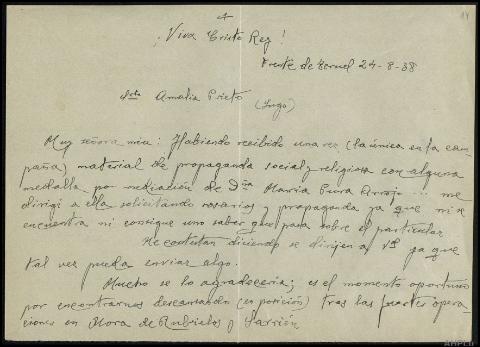 ¡Viva Cristo Rey!
Frente de Teruel 24-8-38
Srta Amalia Prieto (Lugo)
Muy señora mia: Habiendo recibido una vez (la única en la cam-
paña) material de propaganda social y religiosa con alguna
medalla por mediación de Dña Maria Pura ... me
dirigi a ella solicitando rosarios y propaganda ya que ni se
encuentra ni consigue uno saber que pasa sobre el particular
Me contestan diciendo se dirijen a Vd ya que
tal vez pueda enviar algo.
Mucho se lo agradeceria; es el momento oportuno
por encontrarnos descansando (en posición) tras las fuertes opera-
ciones en Mora de Rubielos y Sarrión